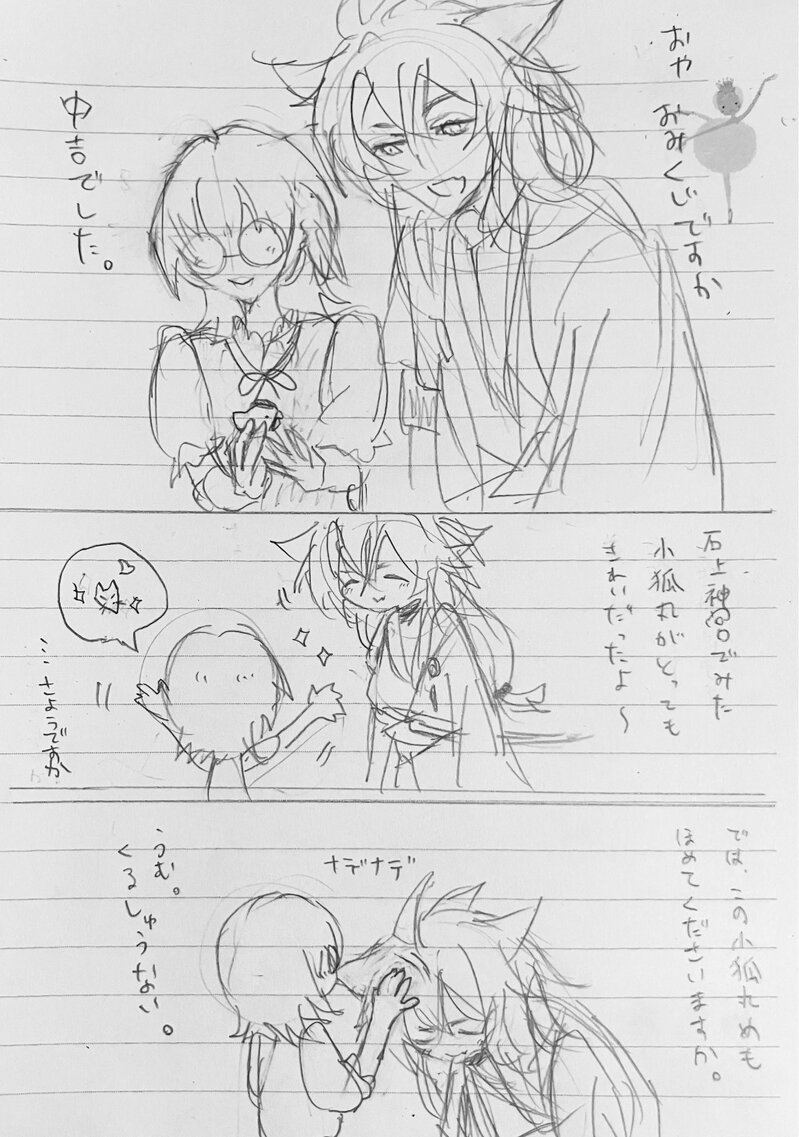 おや おみくじですか
中吉でした。
石上神宮でみた
小狐丸がとっても
きれいだったよ〜
…さようですか
では、この小狐丸めも
ほめてくださいますか。
ナデナデ
うむ。
くるしゅうない。